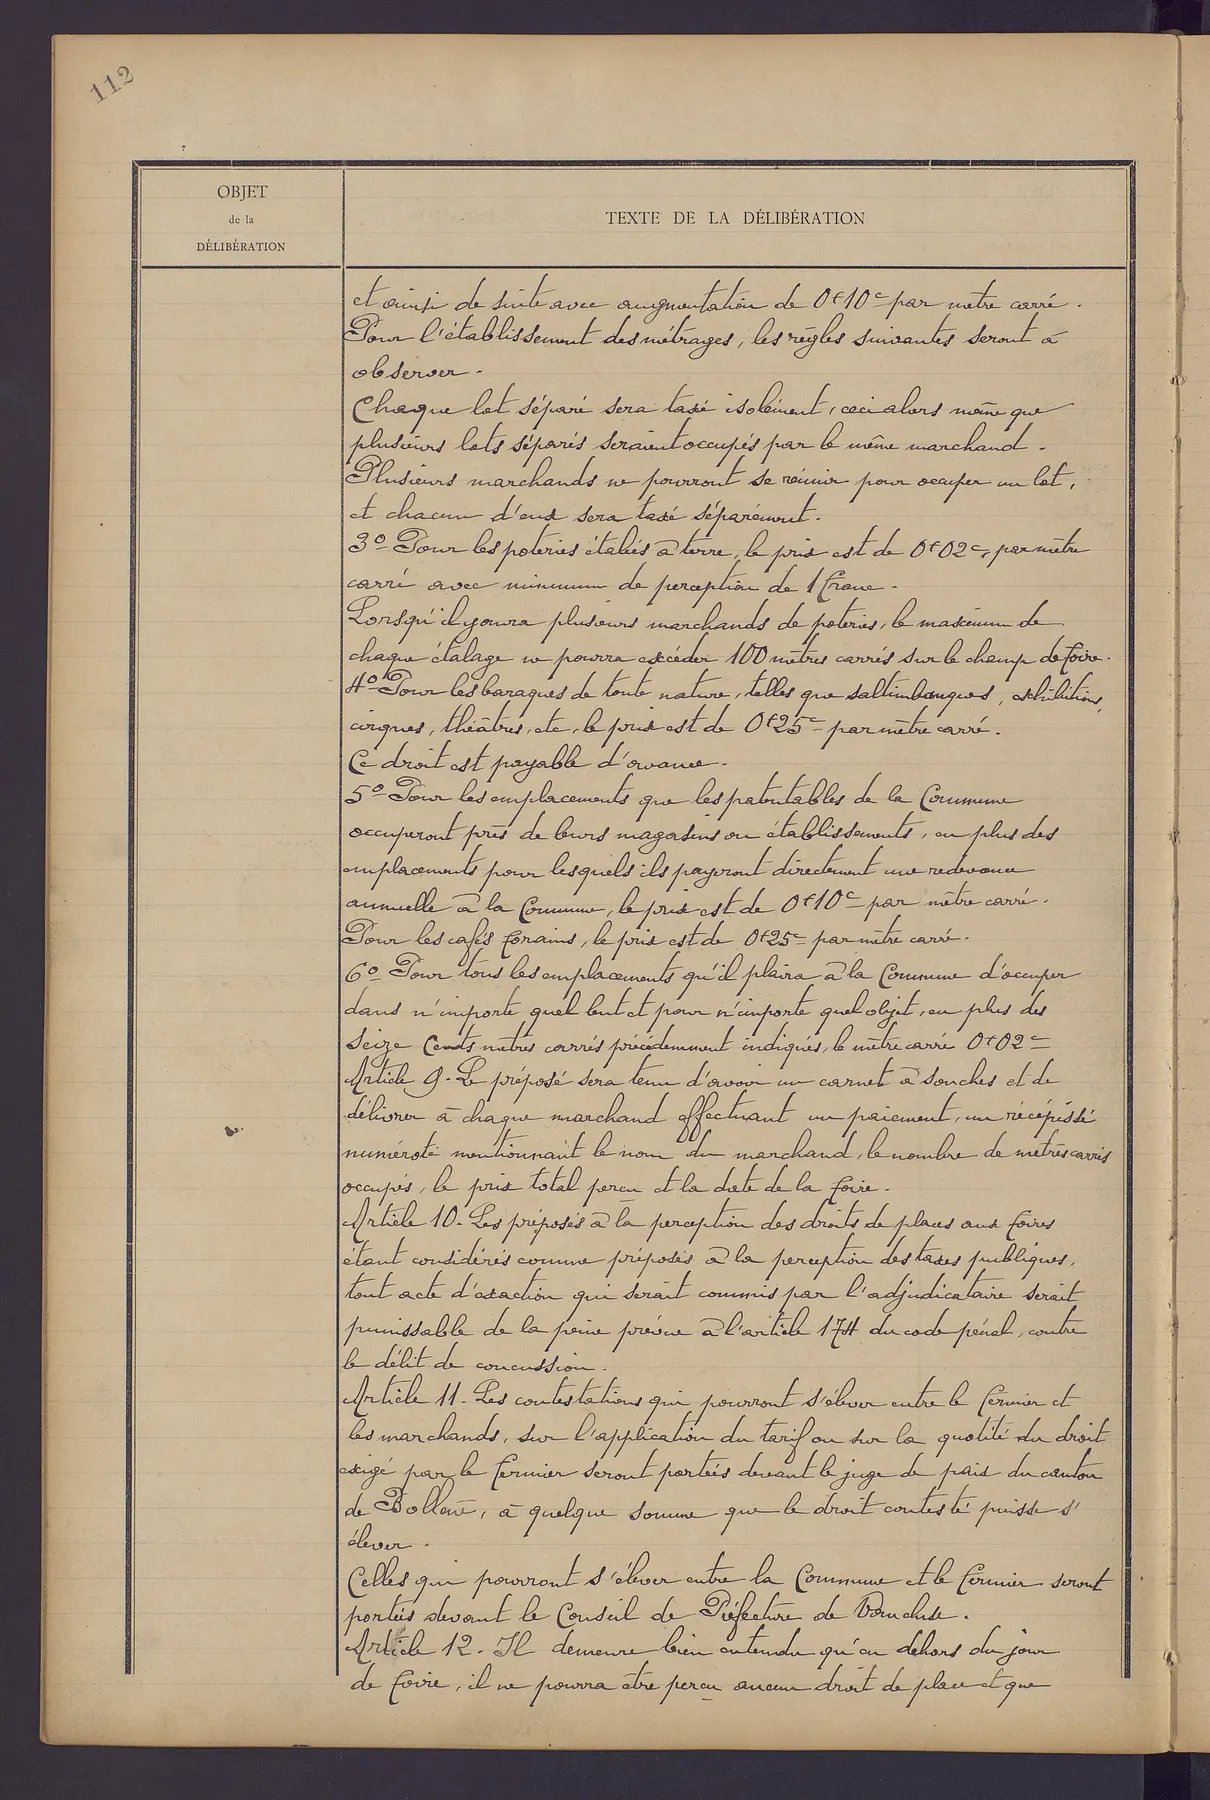 112
OBJET
de la
DÉLIBÉRATION
TEXTE DE LA DÉLIBÉRATION
et ainsi de suite avec augmentation de 0f10c par mètre carré.
Pour l'établissement des métrages, les règles suivantes seront à
observer.
Chaque lot séparé sera taxé isolément, ceci alors même que
plusieurs lots séparés seraient occupés par le même marchand.
Plusieurs marchands ne pourront se réunir pour occuper un lot,
et chacun d'eux sera taxé séparément.
3º Pour les poteries étalées à terre, le prix est de 0f02c, par mètre
carré avec minimum de perception de 1 franc.
Lorsqu'il y aura plusieurs marchands de poteries, le maximum de
chaque étalage ne pourra excéder 100 mètres carrés sur le champ de foire.
4º Pour les baraques de toute nature, telles que saltimbanques, exhibitions,
cirques, théâtres, etc, le prix est de 0f25c par mètre carré.
Ce droit est payable d'avance.
5º Pour les emplacements que les patentables de la Commune
occuperont près de leurs magasins ou établissements, en plus des
emplacements pour lesquels ils payeront directement une redevance
annuelle à la Commune, le prix est de 0f10c par mètre carré.
Pour les cafés forains, le prix est de 0f25c par mètre carré.
6º Pour tous les emplacements qu'il plaira à la Commune d'occuper
dans n'importe quel but et pour n'importe quel objet, en plus des
seize cents mètres carrés précédemment indiqués, le mètre carré 0f02c
Article 9. Le préposé sera tenu d'avoir un carnet à souches et de
délivrer à chaque marchand effectuant un paiement, un récépissé
numéroté mentionnant le nom du marchand, le nombre de mètres carrés
occupés, le prix total perçu et la date de la foire.
Article 10. Les préposés à la perception des droits de places aux foires
étant considérés comme préposés à la perception des taxes publiques,
tout acte d'exaction qui serait commis par l'adjudicataire serait
punissable de la peine prévue à l'article 174 du code pénal, contre
le délit de concussion.
Article 11. Les contestations qui pourront s'élever entre le fermier et
les marchands, sur l'application du tarif ou sur la quotité du droit
exigé par le fermier seront portées devant le juge de paix du canton
de Bollène, à quelque somme que le droit contesté puisse s'
élever.
Celles qui pourront s'élever entre la Commune et le fermier seront
portées devant le Conseil de Préfecture de Vaucluse.
Article 12. Il demeure bien entendu qu'en dehors du jour
de foire, il ne pourra être perçu aucun droit de place et que